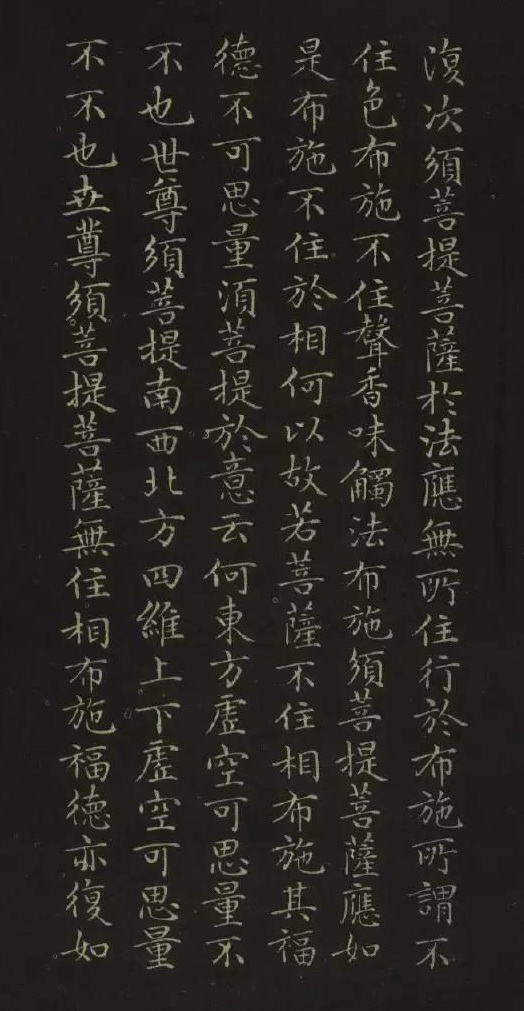 復次須菩提菩薩於法應無所住行於布施所謂不
住色布施不住聲香味觸法布施須菩提菩薩應如
是布施不住於相何以故若菩薩不住相布施其福
德不可思量須菩提於意云何東方虛空可思量不
不也世尊須菩提南西北方四維上下虛空可思量
不不也世尊須菩提菩薩無住相布施福德亦復如